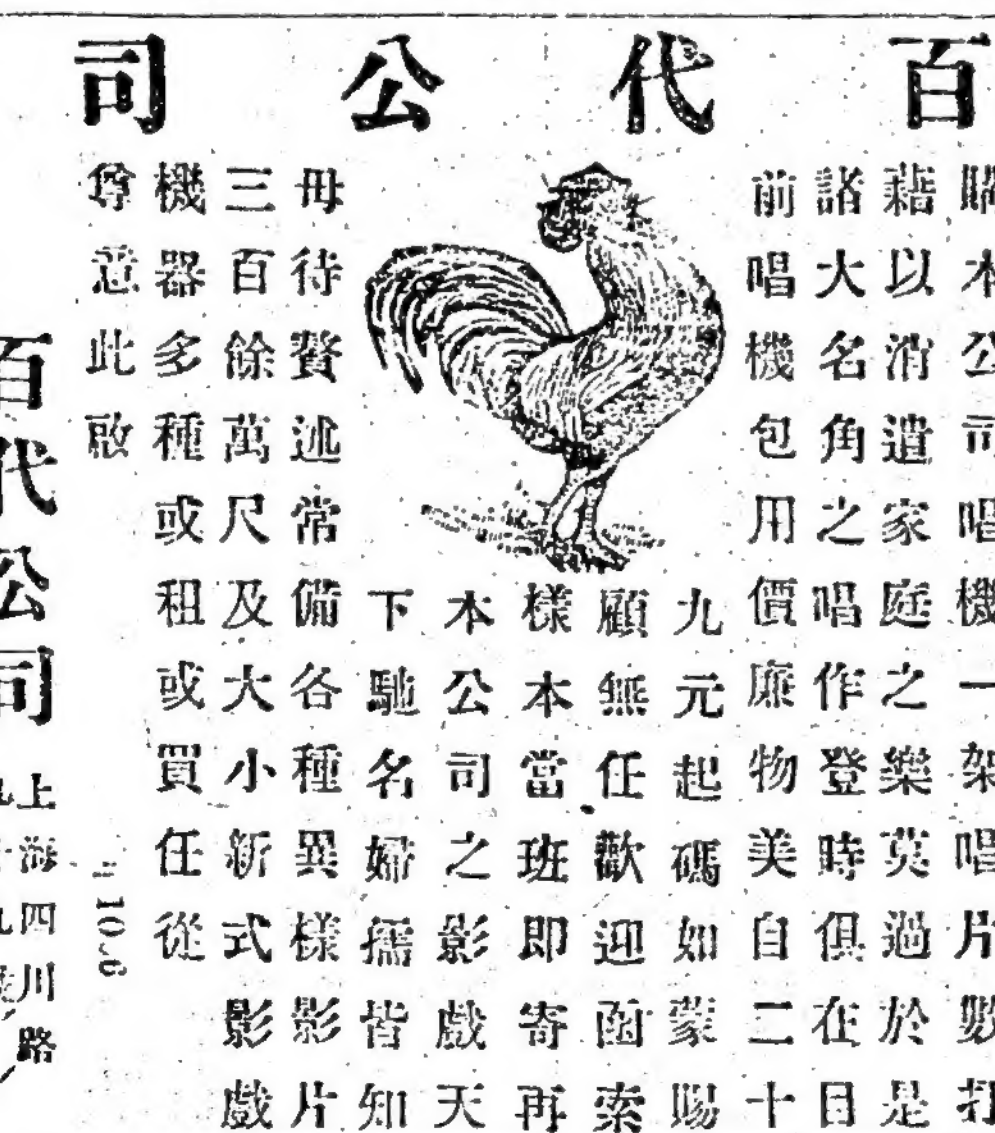 百代公司
購本公司唱機一架唱片數打
藉以消遣家庭之樂莫過於是
諸大名角之唱作登時俱在目
前唱機包用價廉物美自二十
九元起碼如蒙賜
顧無任歡迎函索
樣本當班即寄再
本公司之影戲天
下馳名婦孺皆知
毋待贅述常備各種異樣影片
三百餘萬尺及大小新式影戲
機器多種或租或買任從
尊意此啟
百代公司
上海四川路